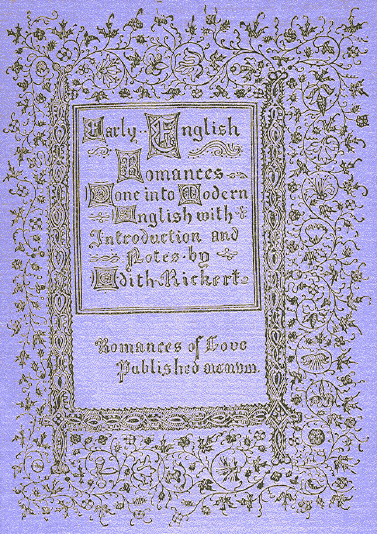 Early English
Romances
Done into Modern
English with
Introduction and
Notes by
Edith Rickert
Romances of Love
Published mcmvm.